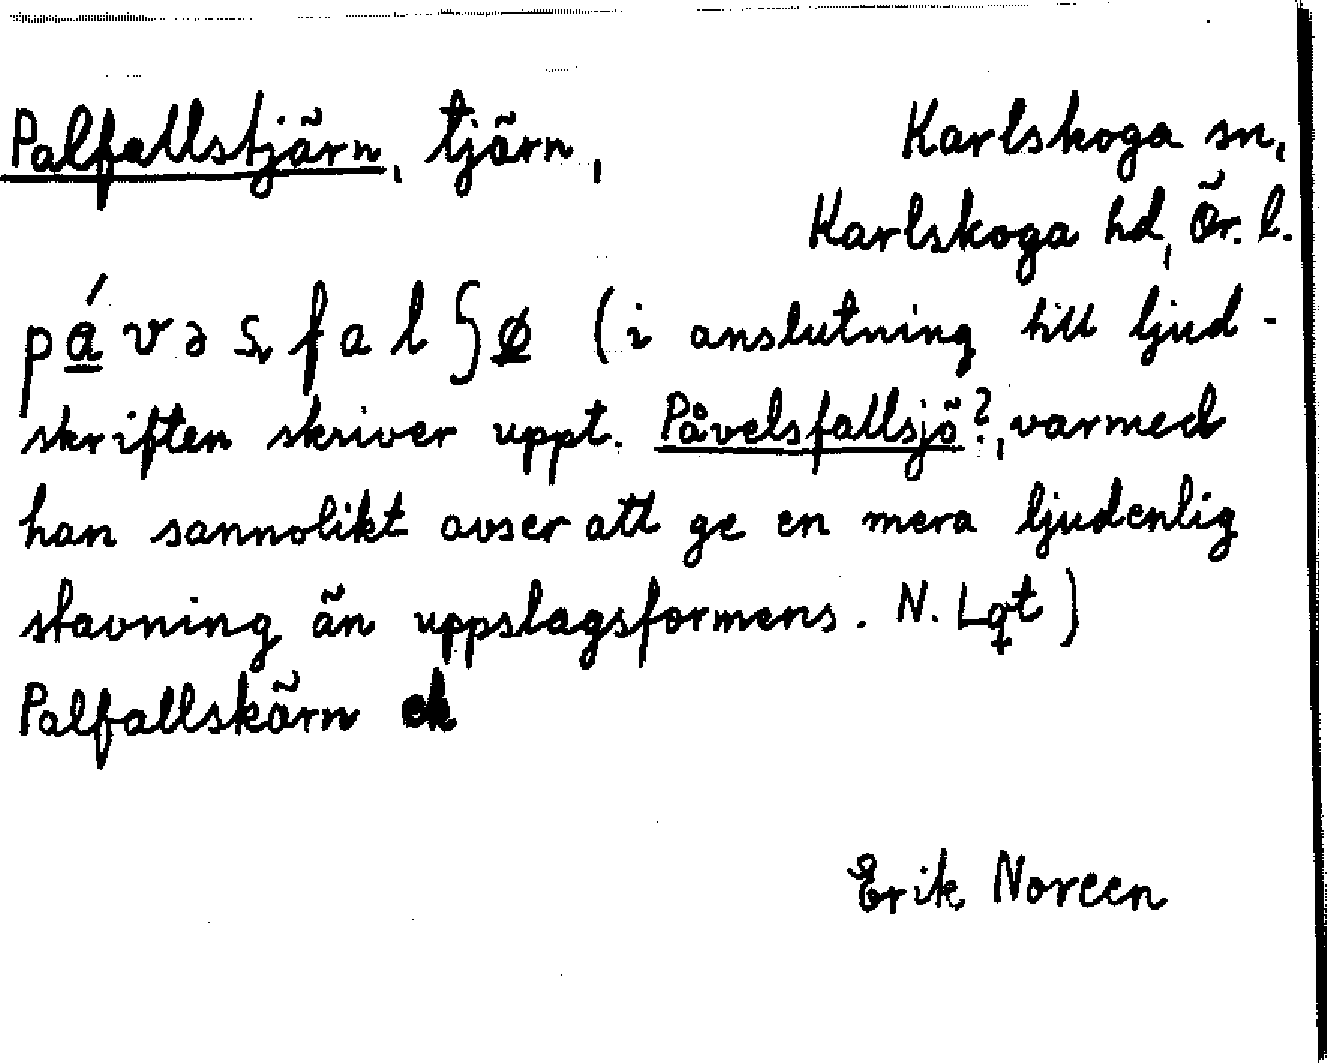 Palfallstjärn, tjärn, Karlskoga sn,
Karlskoga hd, Ör. l.
(i anslutning till ljud-
skriften skriver uppt. Påvelsfallsjö?, varmed
han sannolikt avser att ge en mera ljudenlig
stavning än uppslagsformens. N. Lqt)
Palfallskärn ek
Erik Noreen